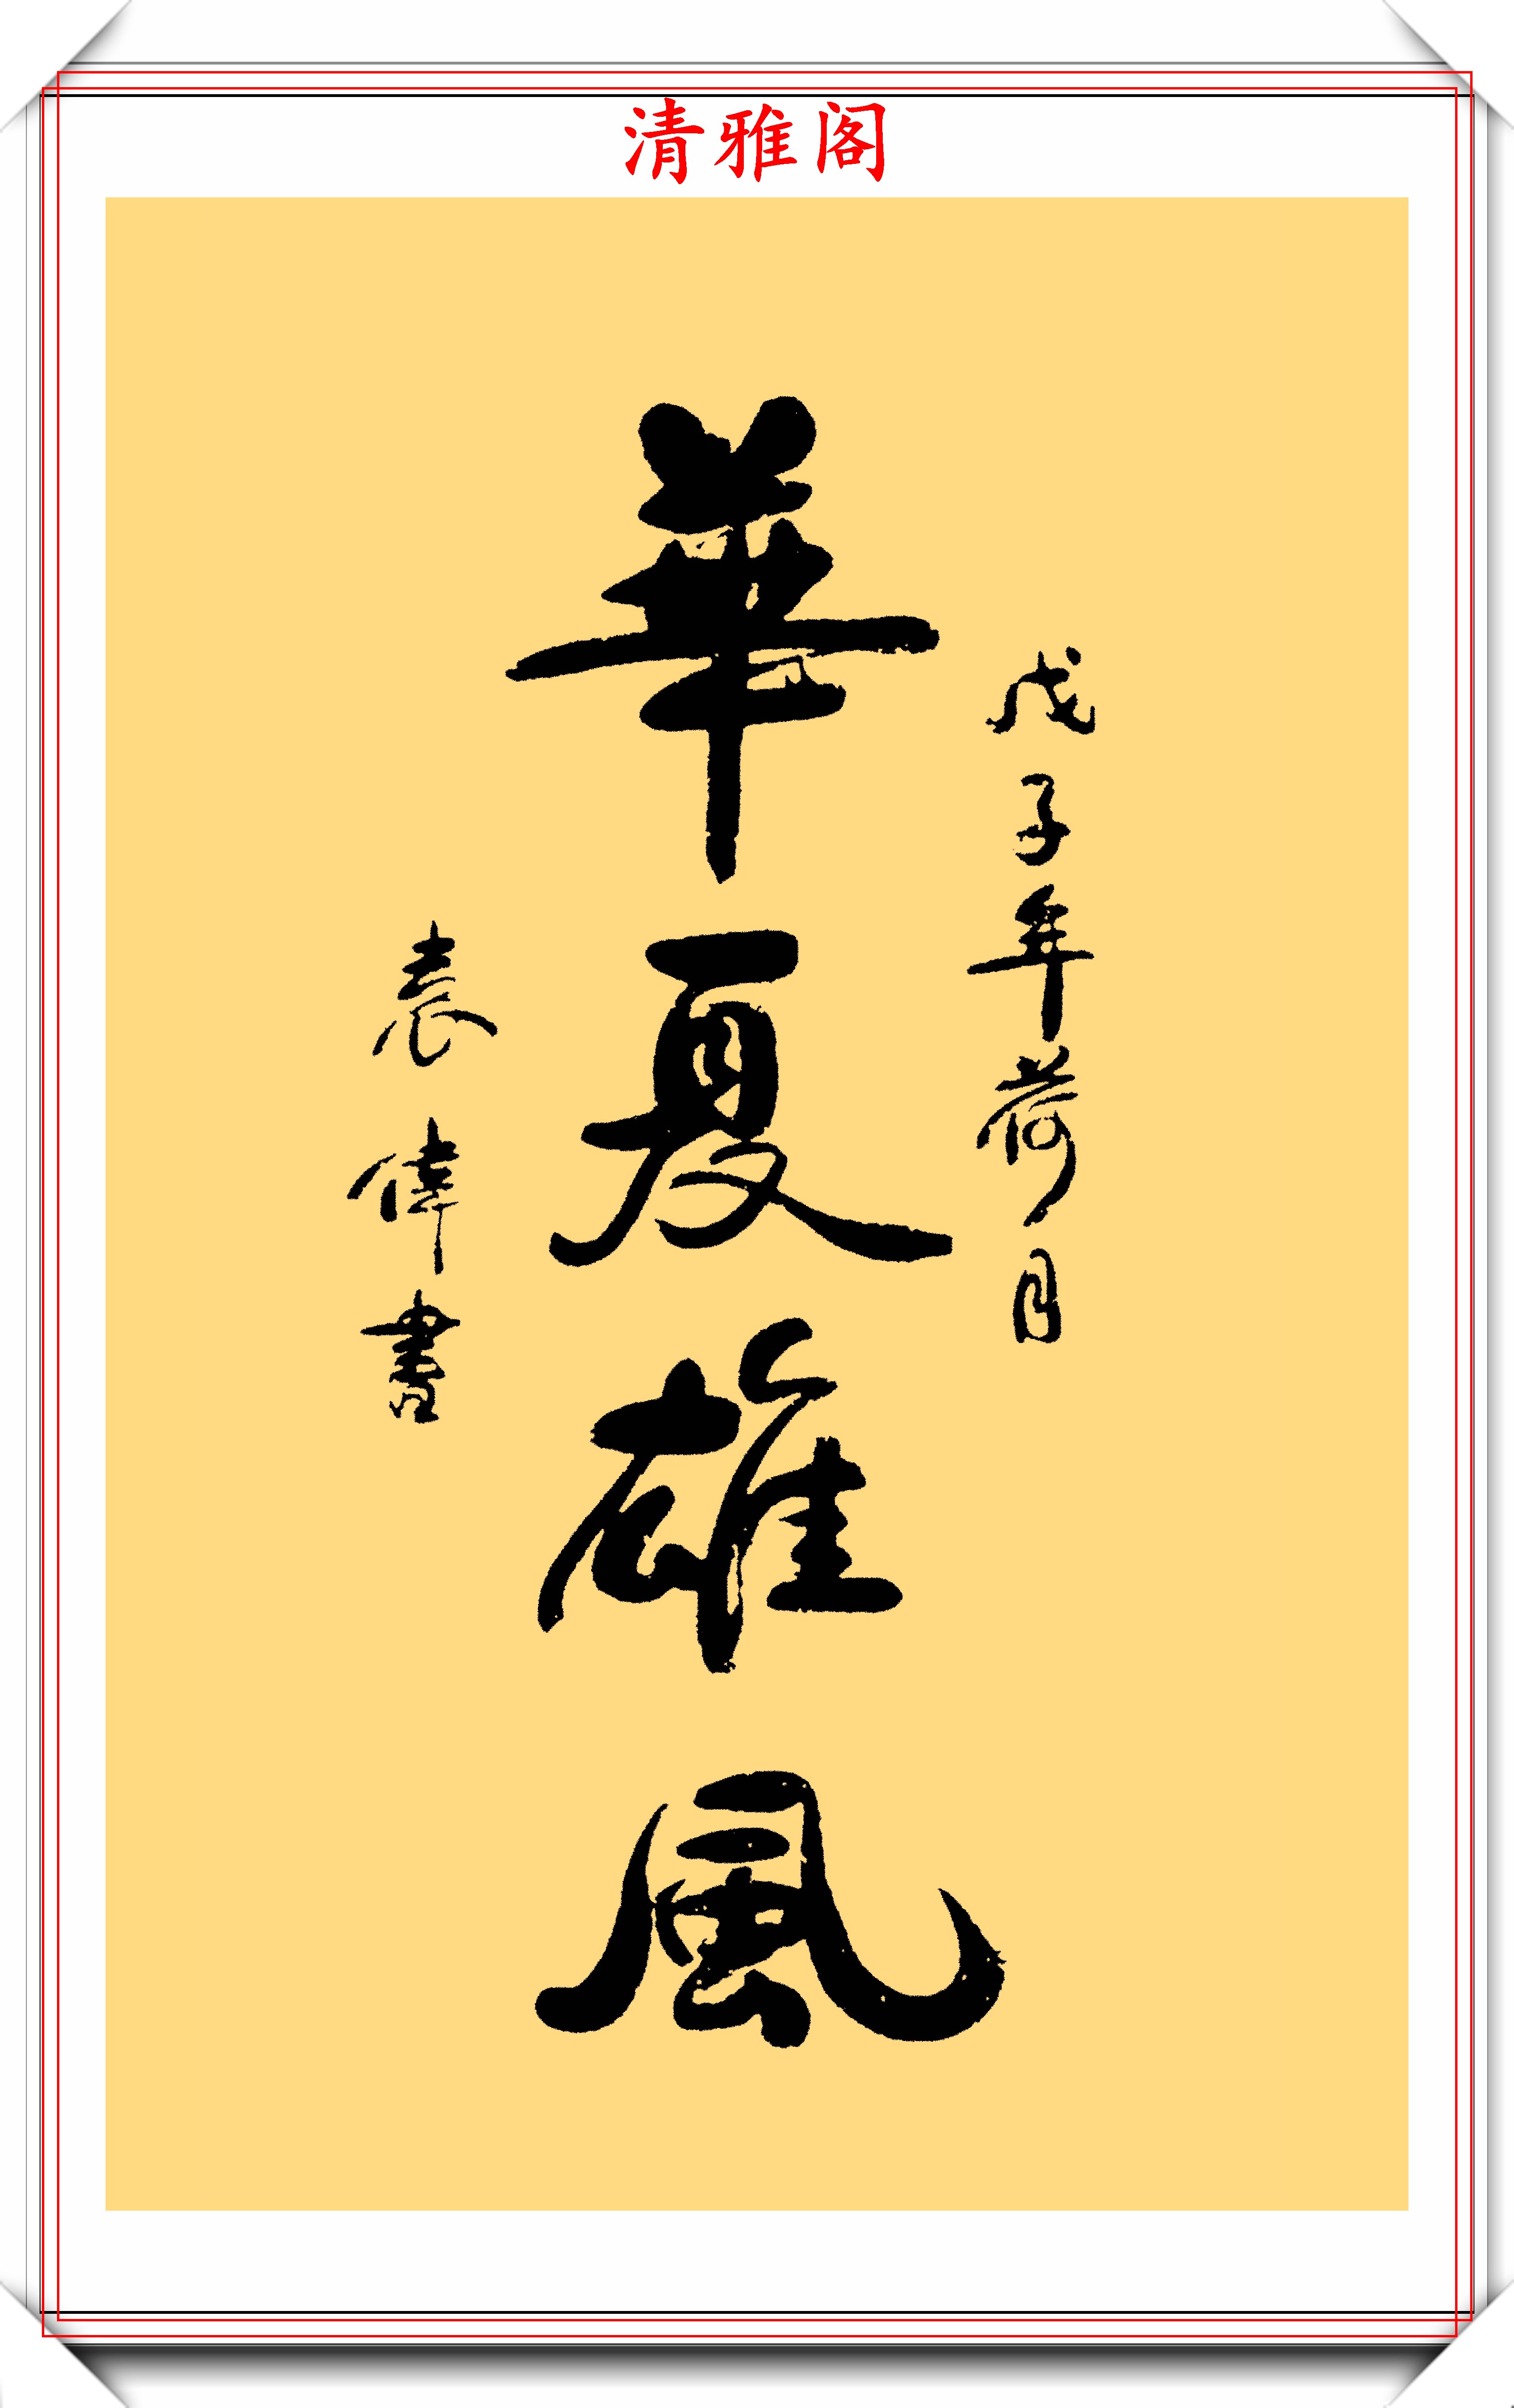 清雅阁
戊子年荷月
華夏雄風
袁偉書